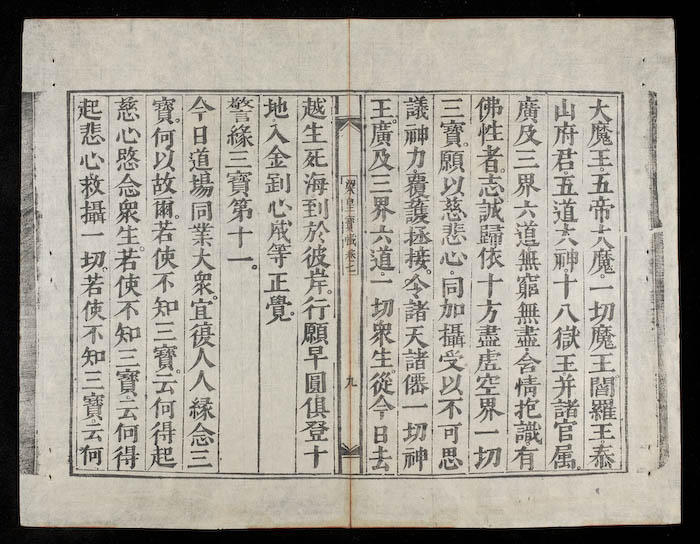 大魔王。五帝大魔。一切魔王。閻羅王泰
山府君。五道大神。十八獄王。并諸官属。
廣及三界六道。無窮無盡。含情抱識。有
佛性者。志誠歸依十方盡虚空界一切
三寶。願以慈悲心。同加攝受。以不可思
議神力覆護拯接。令諸天諸僊一切神
王。廣及三界六道。一切衆生。從今日去
梁皇寶懺卷七
九
越生死海到於彼岸。行願早圓俱登十
地入金剛心成等正覺。
警緣三寶第十一。
今日道場同業大衆。宜復人人緣念三
寶。何以故爾。若使不知三寶。云何得起
慈心愍念衆生。若使不知三寶。云何得
起悲心救攝一切。若使不知三寶。云何